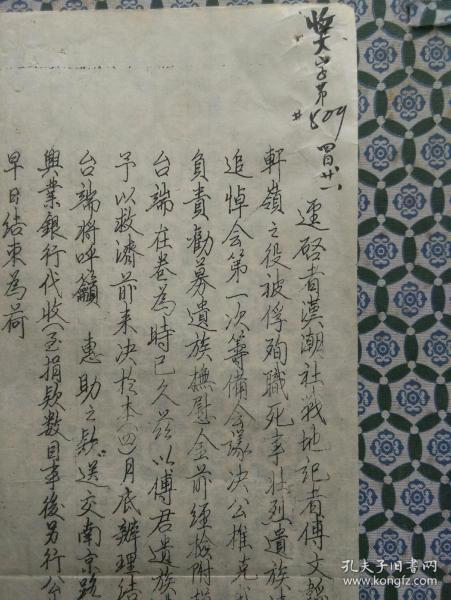 獎字第
#809
四廿八
逕啓者漢潮社戰地記者傅文
軒嶺之役被俘殉職死事壯烈遺族
追悼会第一次籌備会議决公推克
負責勸募遺族撫慰金前經檢附
台端在卷為時已久茲以傅君遺族
予以救濟前来决於本(四)月底辦理结
台端将呼籲 惠助之款送交南京路
興業銀行代收(至捐款数目事後另行公
早日结束為荷
孔夫子旧书网
kongfz.com